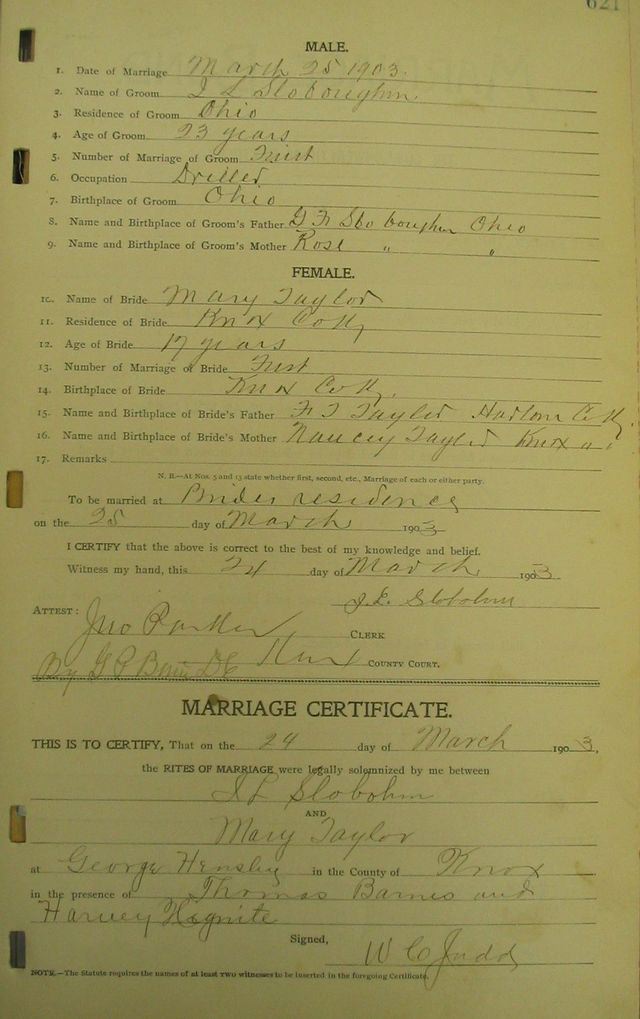 621
MALE.
1. Date of Marriage March 25 1903.
2. Name of Groom J L Sloboughm.
3. Residence of Groom Ohio
4. Age of Groom 23 years
5. Number of Marriage of Groom First
6. Occupation Driller
7. Birthplace of Groom Ohio
8. Name and Birthplace of Groom's Father G F Sloboughm Ohio
9. Name and Birthplace of Groom's Mother Rose " "
FEMALE.
10. Name of Bride Mary Taylor
11. Residence of Bride Knox Co Ky
12. Age of Bride 17 years
13. Number of Marriage of Bride First
14. Birthplace of Bride Knox Co Ky.
15. Name and Birthplace of Bride's Father F T Taylor Harlan Co Ky.
16. Name and Birthplace of Bride's Mother Nancey Taylor Knox
17. Remarks
N. B.—At Nos. 5 and 13 state whether first, second, etc., Marriage of each or either party.
To be married at Brides residence
on the 25 day of March 1903
I CERTIFY that the above is correct to the best of my knowledge and belief.
Witness my hand, this 24 day of March 1903
J. L. Slobohm
ATTEST: Jno Parker CLERK
By G P Knox COUNTY COURT.
MARRIAGE CERTIFICATE.
THIS IS TO CERTIFY, That on the 24 day of March 1903,
the RITES OF MARRIAGE were legally solemnized by me between
J L Slobohm
AND
Mary Taylor
at George Hensley in the County of Knox
in the presence of Thomas Barnes and
Harvey Hignite
Signed,
W C Judd
NOTE.—The Statute requires the names of at least two witnesses to be inserted in the foregoing Certificate.